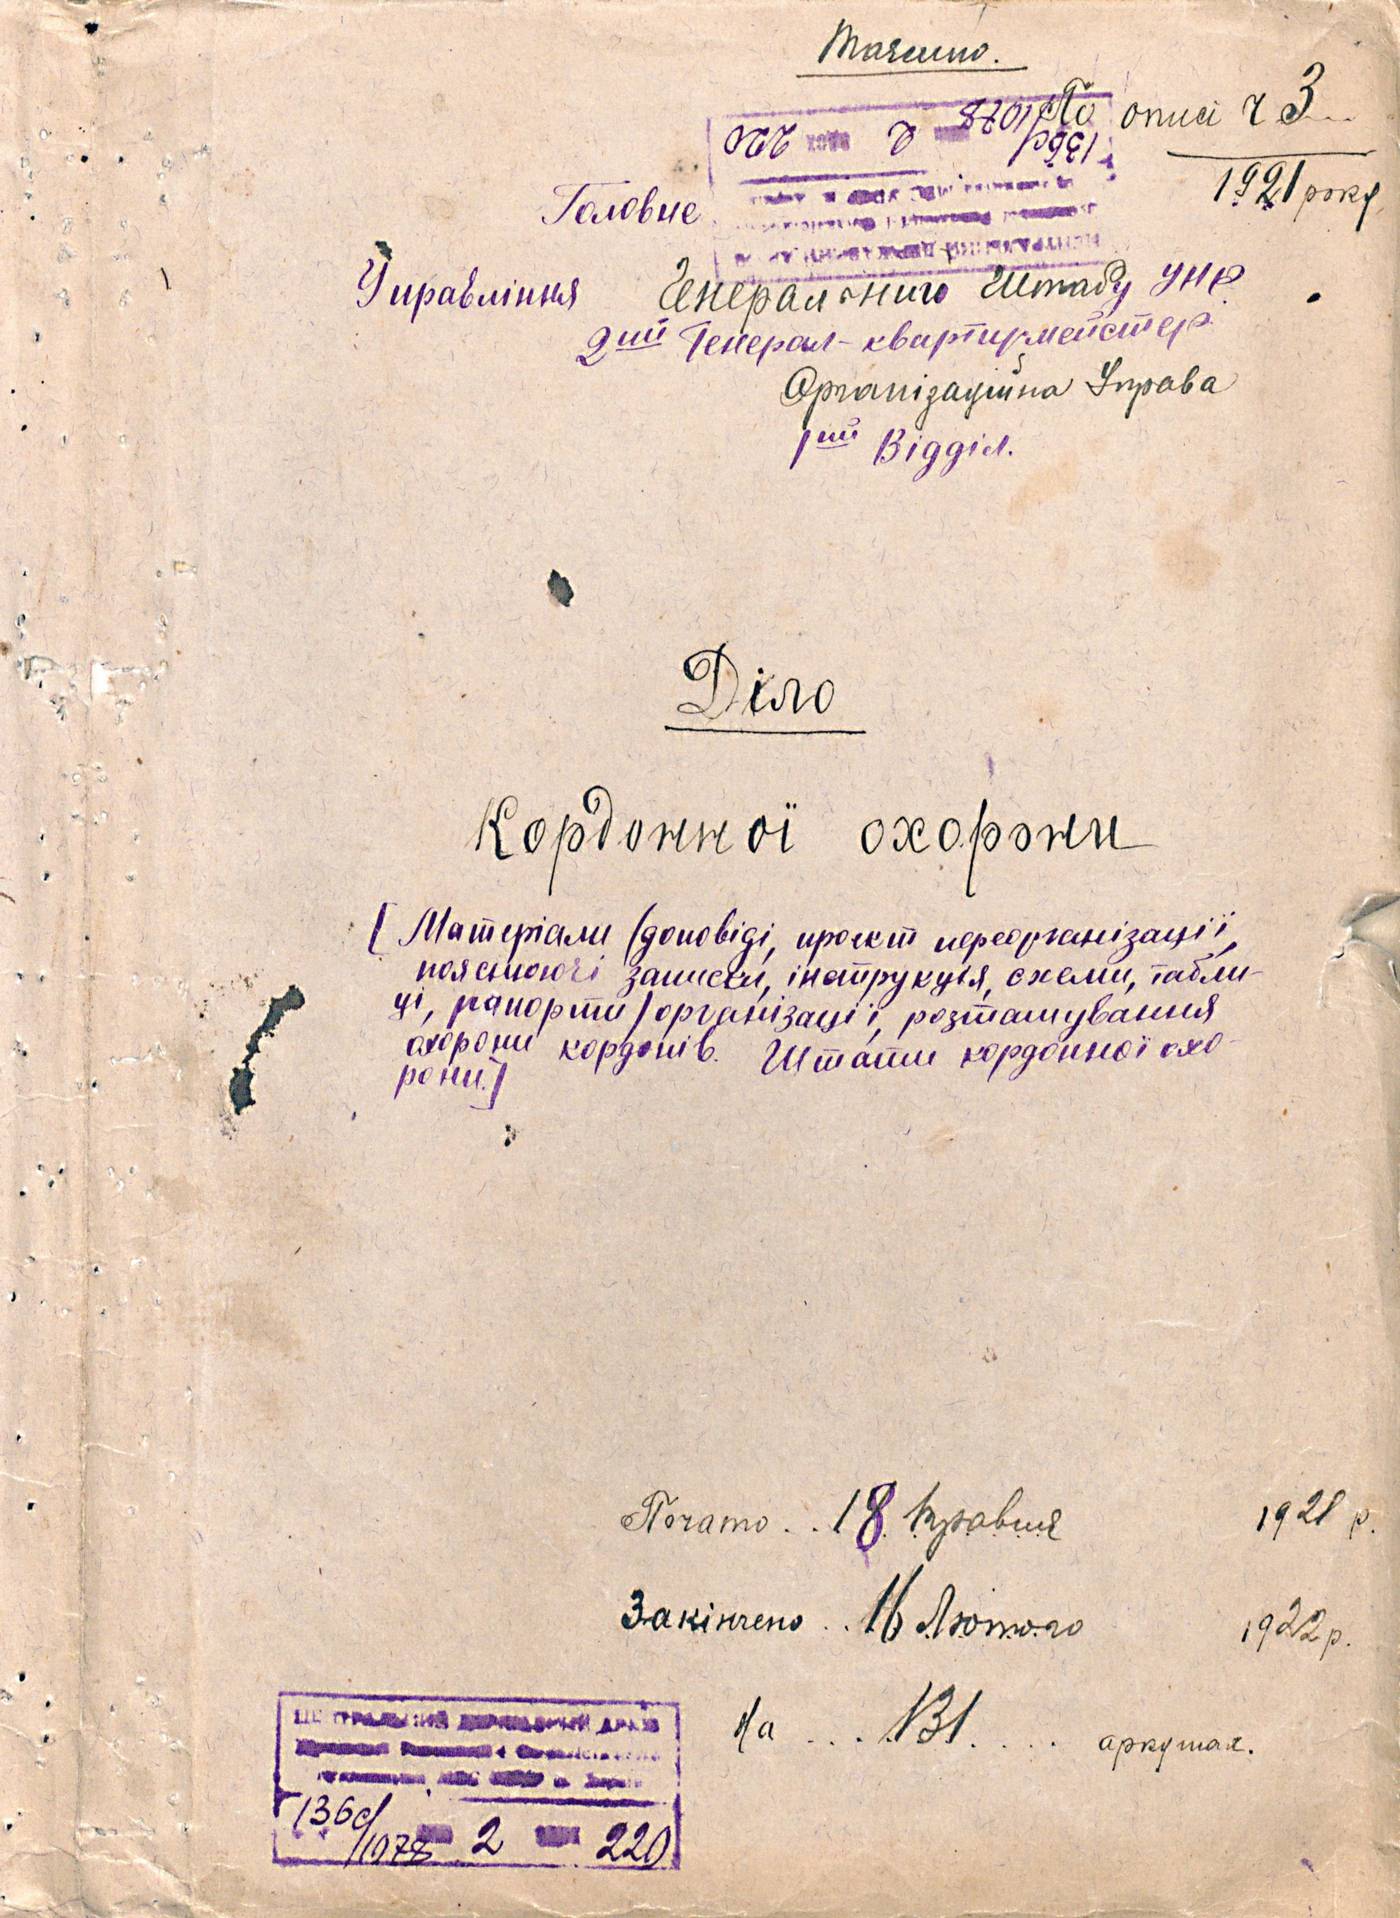 Таємно.
По описі ч 3
1921 року
Головне
Управління Генерального Штабу УНР.
2ий Генерал-квартирмейстер.
Організаційна Управа
1ий Відділ.
Діло
Кордонної охорони
[Матеріали /доповіді, проєкт переорганізації,
пояснюючі записки, інструкція, схеми, табли-
ці, рапорти/ організації, розташування
охорони кордонів. Штати кордонної охо-
рони.]
Почато .. 18 травня 1921 р.
Закінчено .. 16 Лютого 1922 р.
На ... 131 .... аркушах.
ЦЕНТРАЛЬНИЙ ДЕРЖАВНИЙ АРХІВ
136с/1078 2 220